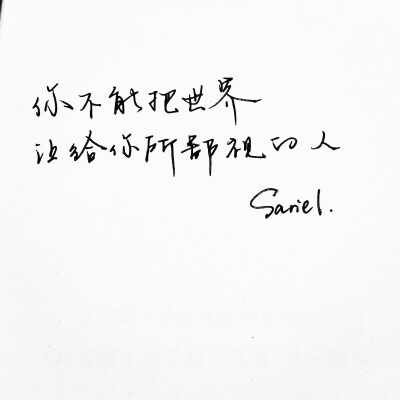 你不能把世界
让给你所鄙视的人
Sariel.